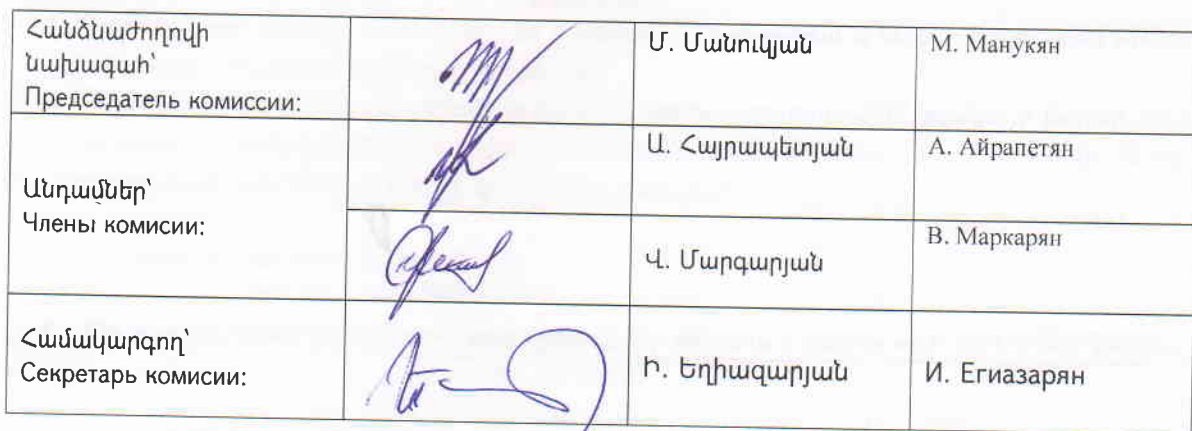 Հանձնաժողովի
նախագահ՝
Председатель комиссии:
Մ. Մանուկյան
М. Манукян
Անդամներ՝
Члены комисии:
Ա. Հայրապետյան
А. Айрапетян
Վ. Մարգարյան
В. Маркарян
Համակարգող՝
Секретарь комисии:
Ի. Եղիազարյան
И. Егиазарян